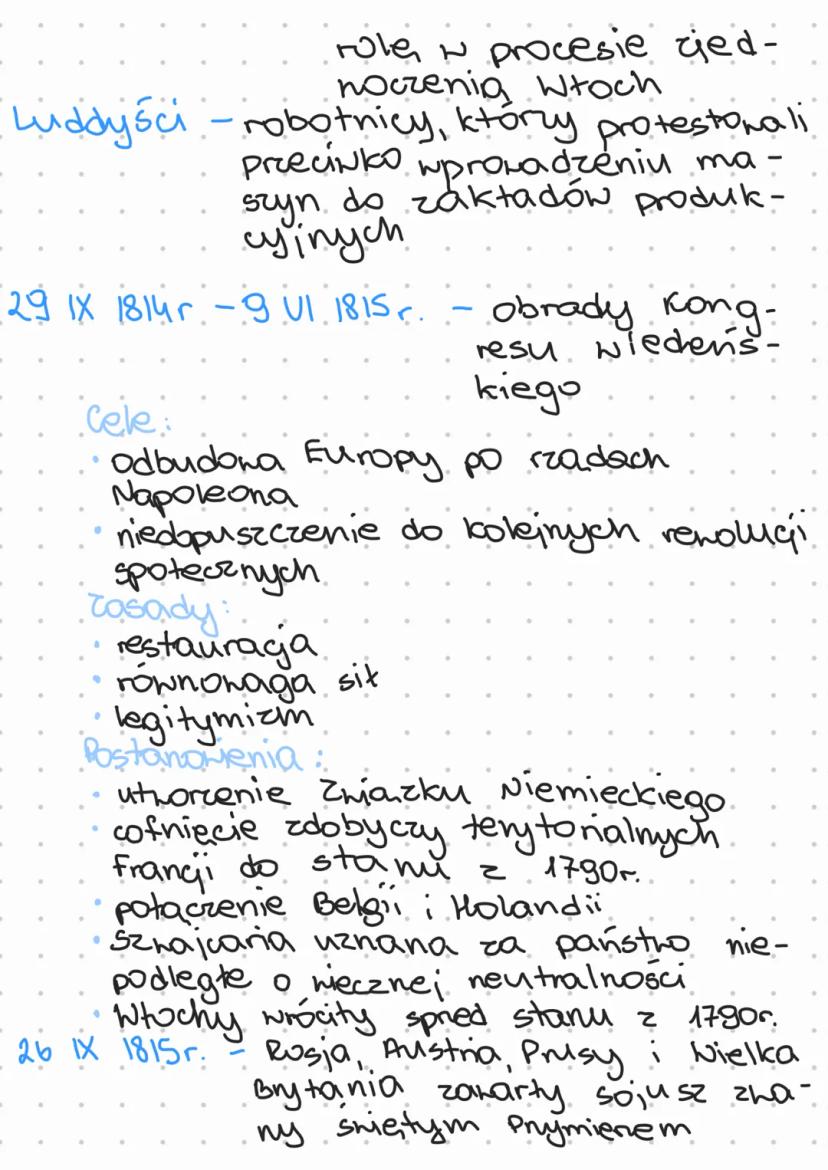 rolę w procesie zjed-
noczenia Włoch
Luddyści - robotnicy, który protestowali
przeciwko wprowadzeniu ma-
szyn do zakładów produk-
cyjnych
29 IX 1814r. - 9 VI 1815r. - obrady Kong-
resu wiedeńs-
kiego
Cele:
• odbudowa Europy po rządach
Napoleona
• niedopuszczenie do kolejnych rewolucji
społecznych
Zasady:
• restauracja
• równowaga sił
• legitymizm
Postanowienia:
• utworzenie Związku Niemieckiego
• cofnięcie zdobyczy terytorialnych
Francji do stanu z 1790r.
• połączenie Belgii i Holandii
• Szwajcaria uznana za państwo nie-
podległe o wiecznej neutralności
• Włochy wróciły sprzed stanu z 1790r.
26 IX 1815r. - Rosja, Austria, Prusy i Wielka
Brytania zawarły sojusz zwa-
ny świętym Przymierzem